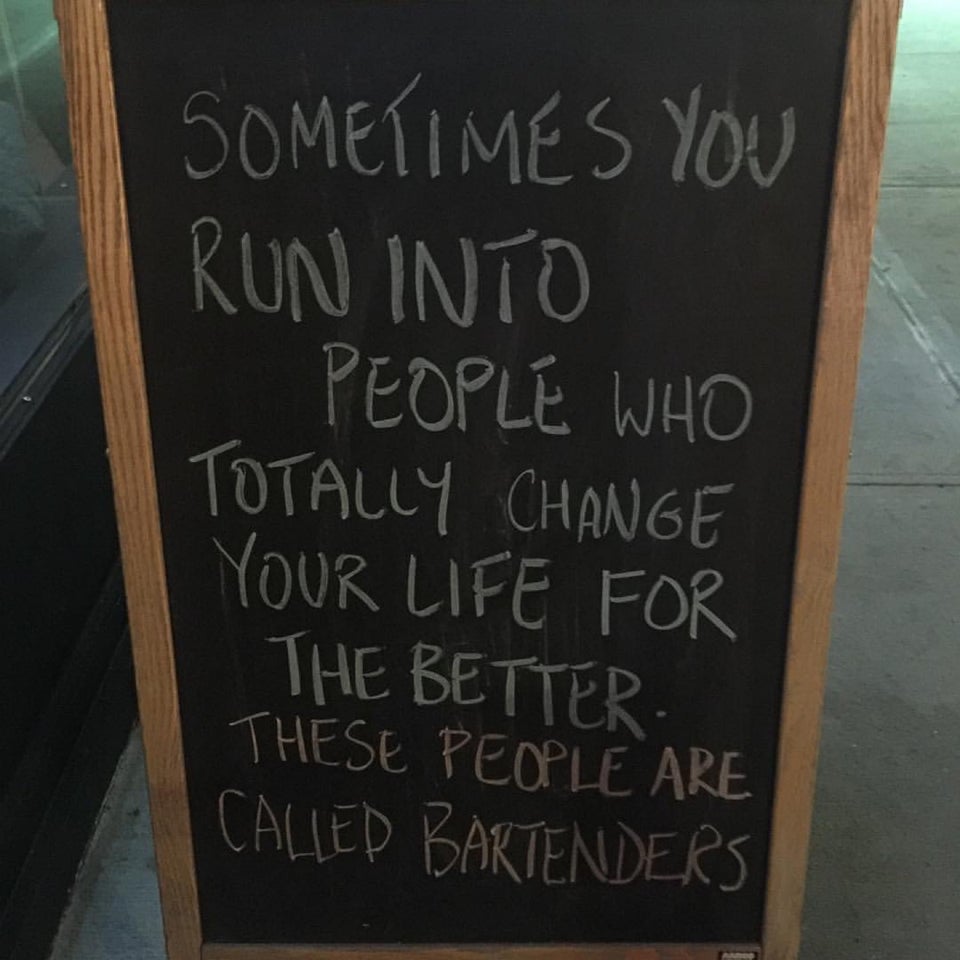 SOMETIMES YOU
RUN INTO
PEOPLE WHO
TOTALLY CHANGE
YOUR LIFE FOR
THE BETTER.
THESE PEOPLE ARE
CALLED BARTENDERS